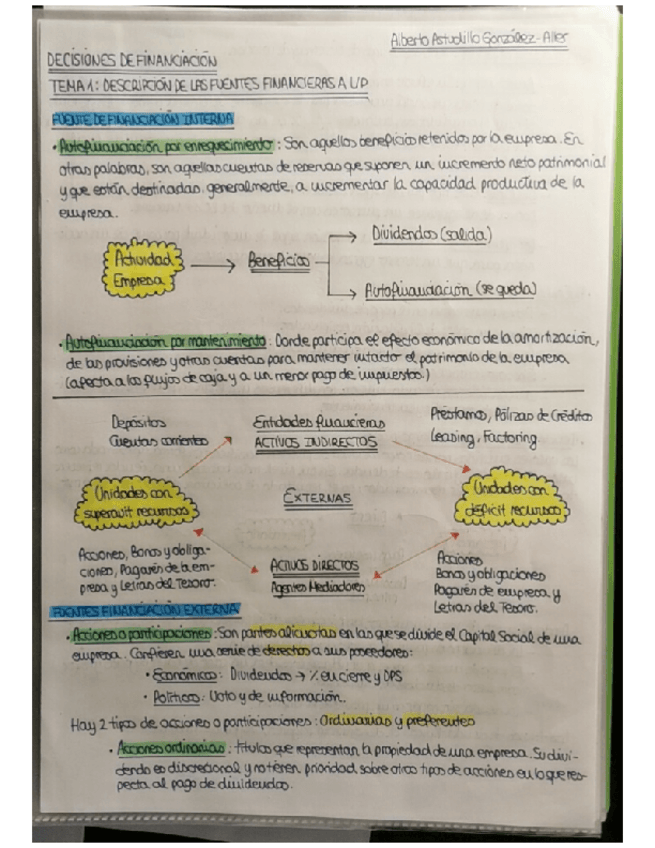 Alberto Astudillo González-Aller
DECISIONES DE FINANCIACIÓN
TEMA 1: DESCRIPCIÓN DE LAS FUENTES FINANCIERAS A L/P
FUENTE DE FINANCIACIÓN INTERNA
• Autofinanciación por enriquecimiento: Son aquellos beneficios retenidos por la empresa. En
otras palabras, son aquellas cuentas de reservas que suponen un incremento neto patrimonial
y que están destinadas, generalmente, a incrementar la capacidad productiva de la
empresa.
Actividad Empresa → Beneficios
→ Dividendos (salida)
→ Autofinanciación (se queda)
• Autofinanciación por mantenimiento: Donde participa el efecto económico de la amortización,
de las provisiones y otras cuentas para mantener intacto el patrimonio de la empresa
(afecta a los flujos de caja y a un menor pago de impuestos.)
Depósitos
Cuentas corrientes
Entidades financieras
ACTIVOS INDIRECTOS
Préstamos, Pólizas de Créditos
Leasing, Factoring
Unidades con
superavit recursos
EXTERNAS
Unidades con
déficit recursos
Acciones, Bonos y obliga-
ciones, Pagarés de la em-
presa y Letras del Tesoro.
ACTIVOS DIRECTOS
Agentes Mediadores
Acciones
Bonos y obligaciones
Pagarés de empresa y
Letras del Tesoro.
FUENTES FINANCIACIÓN EXTERNA
• Acciones o participaciones: Son partes alícuotas en las que se divide el Capital Social de una
empresa. Confieren una serie de derechos a sus poseedores:
• Económicos: Dividendos → % en cierre y DPS
• Políticos: Voto y de información.
Hay 2 tipos de acciones o participaciones: Ordinarias y preferentes
• Acciones ordinarias: títulos que representan la propiedad de una empresa. Su divi-
dendo es discrecional y no tienen prioridad sobre otros tipos de acciones en lo que res-
pecta al pago de dividendos.